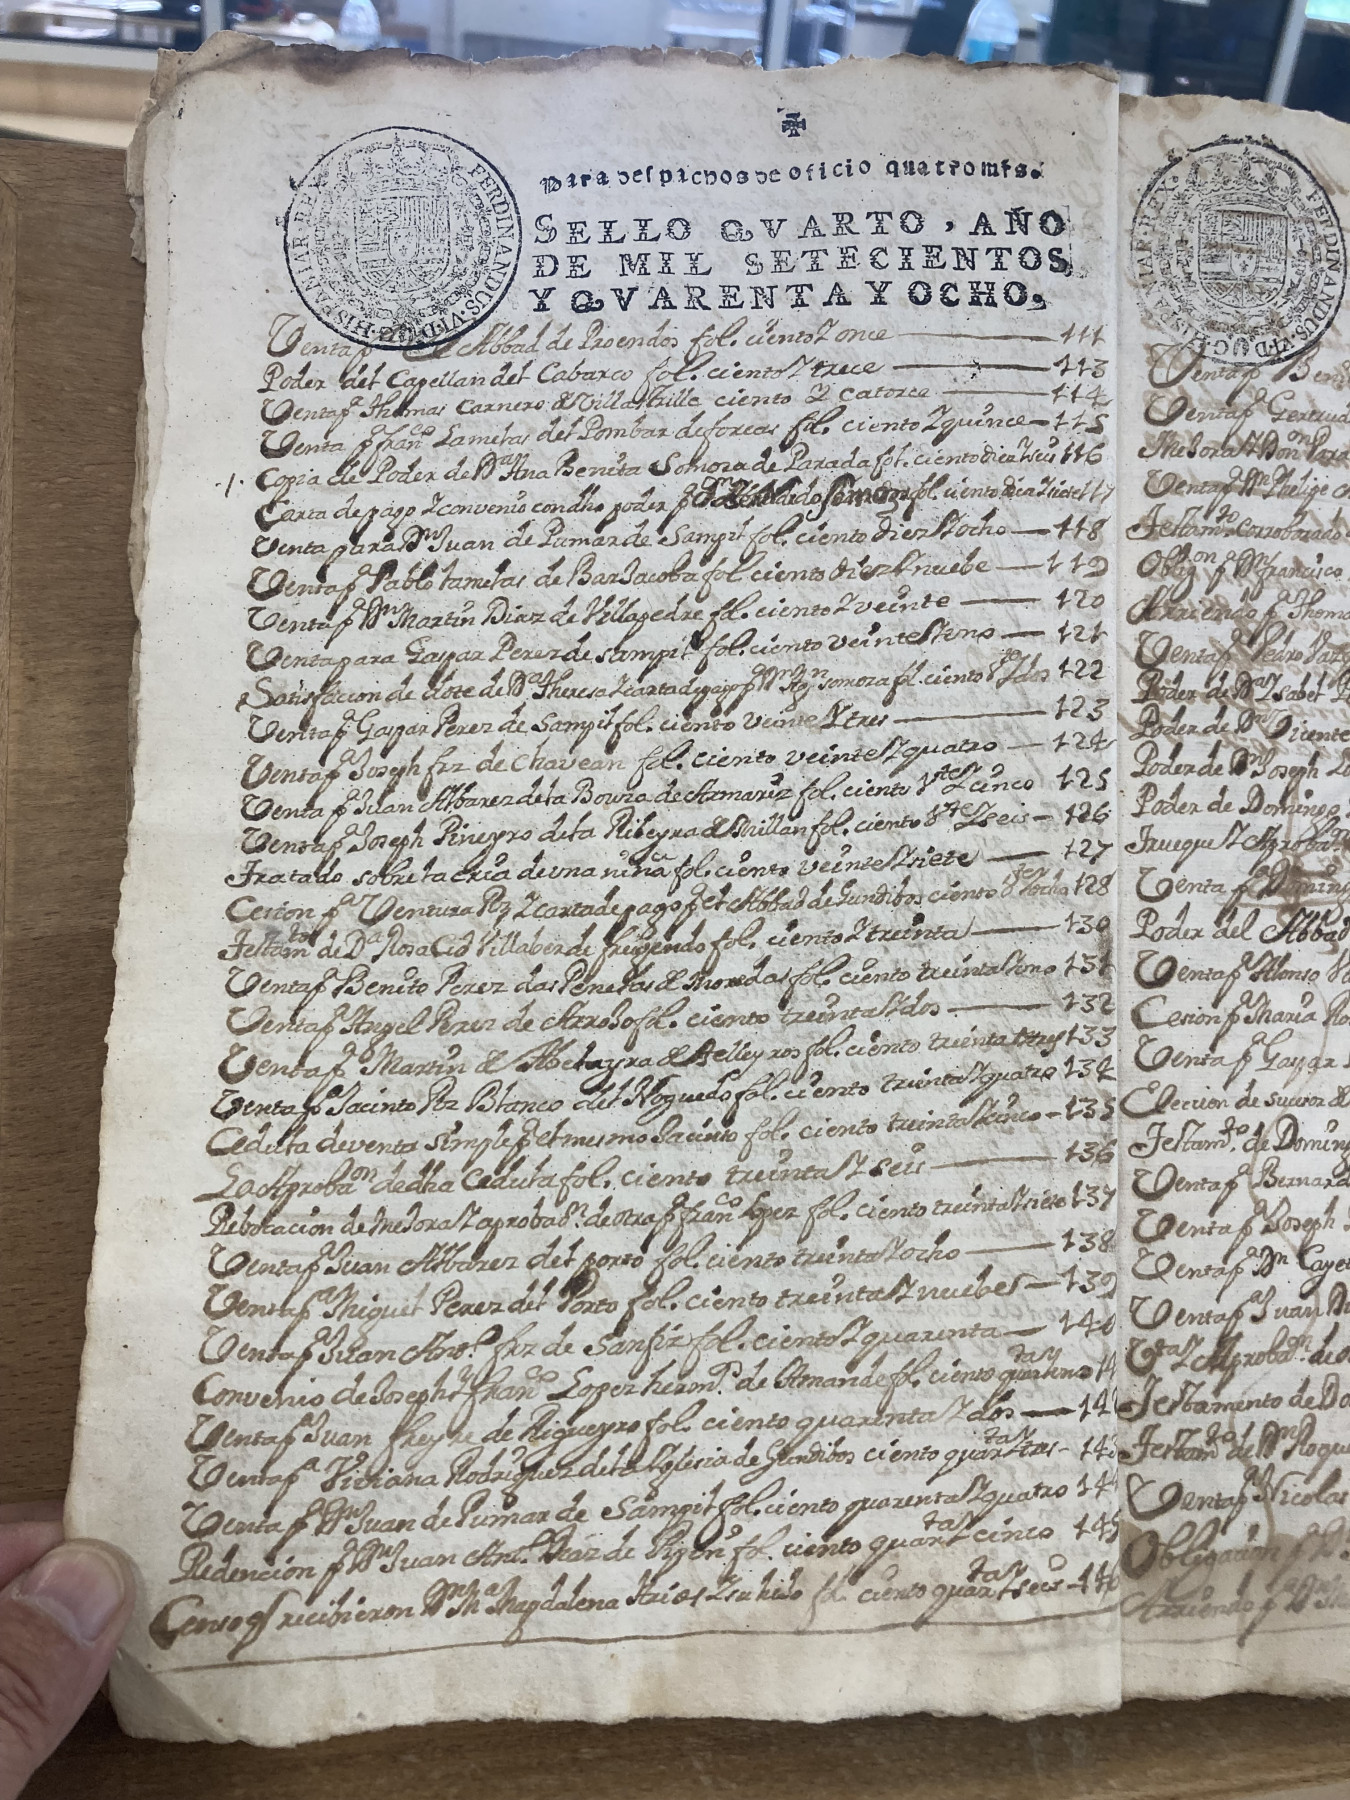 Para despachos de oficio quatro mrs.
SELLO QVARTO, AÑO
DE MIL SETECIENTOS
Y QVARENTA Y OCHO,
FERDINANDUS·VI·D·G·HISPANIAR·REX·
Venta pª el Abbad de Proendos fol. ciento Y once — 111
Poder del Capellan del Cabarco fol. ciento Y trece — 113
Venta pª Thomas Carnero de Villastrille ciento Y catorce — 114
Venta pª franco Lamelas del Pombar de forcas fol. ciento Y quince — 115
Copia de Poder de Dª Ana Benita Somoza de Parada fol. ciento diez Y seis 116
Carta de pago Y convenio con dho poder pª Dn fol. ciento diez Y siete 117
Venta para Dn Juan de Pumar de Sampil fol. ciento diez Y ocho — 118
Venta pª Pablo lamelas de Barxacoba fol. ciento diez Y nuebe — 119
Venta pª Dn Martin Diaz de Villapedre fol. ciento Y veinte — 120
Venta para Gaspar Perez de Sampil fol. ciento veinte Y uno — 121
Satisfacion de dote de Dª Theresa Y carta de pago pª Dn somoza fol. ciento Vte Y dos 122
Venta pª Gaspar Perez de Sampil fol. ciento veinte Y tres — 123
Venta pª Joseph frz de Chavean fol. ciento veinte Y quatro — 124
Venta pª Juan Albarez de la Bouza de Amariz fol. ciento Vte Y cinco 125
Venta pª Joseph Pineyro de la Ribeyra de Millan fol. ciento Vte Y seis — 126
Tratado sobre la cria de una niña fol. ciento veinte Y siete — 127
Cesion pª Ventura Prz Y carta de pago pª el Abbad de Gundibos ciento Vte Y ocho 128
Testamto de Dª Rosa Cid Villaberde freijendo fol. ciento Y treinta — 130
Venta pª Benito Perez das Penelas de Moredas fol. ciento treinta Y uno 131
Venta pª Angel Perez de Arroxo fol. ciento treinta Y dos — 132
Venta pª Martin de Abelayra de Pelleyros fol. ciento treinta Y tres 133
Venta pª Jacinto Prz Blanco del Noguedo fol. ciento treinta Y quatro 134
Cedula de venta simple pª el mesmo Jacinto fol. ciento treinta Y cinco — 135
La Aprobaon de dha Cedula fol. ciento treinta Y seis — 136
Rebocacion de Mejora Y aprobaon de otra pª franco Lopez fol. ciento treinta Y siete 137
Venta pª Juan Albarez del porto fol. ciento treinta Y ocho — 138
Venta pª Miguel Perez del Porto fol. ciento treinta Y nuebe — 139
Venta pª Juan Anto frz de Sanfiz fol. ciento Y quarenta — 140
Convenio de Joseph Y franco Lopez hermos de Amande fol. ciento quartas Y uno 14
Venta pª Juan freyre de Rigueyro fol. ciento quarenta Y dos — 14
Venta pª Viviana Rodriguez de la Yglesia de Gundibos ciento quarta Y tres — 14
Venta pª Dn Juan de Pumar de Sampil fol. ciento quarenta Y quatro 14
Redencion pª Dn Juan Anto Diaz de fol. ciento quarta Y cinco 145
Censo qe recibieron Dª Mª Magdalena Arias Y su hixo fol. ciento quarta Y seis — 146
Venta pª
Venta pª
Mejora Y Don
Venta pª Dn Phelipe
Testamto corroborado
Obligon pª Dn francisco
Arriendo pª Thoma
Venta pª Pedro
Poder de Dª Ysabel
Poder de Dn Vicente
Poder de Dn Joseph
Poder de Domingo
Trueque Y Aprobaon
Venta pª Domin
Poder del Abbad
Venta pª Alonso
Cesion pª Maria
Venta pª Gaspar
Eleccion de
Testamto de Domin
Venta pª Bernard
Venta pª Joseph
Venta pª Dn Cayet
Venta pª Juan
Vta Y Aprobaon de
Testamento de Do
Testamto de Dn Roque
Venta pª Nicolas
Obligacion pª
Arriendo pª Dn